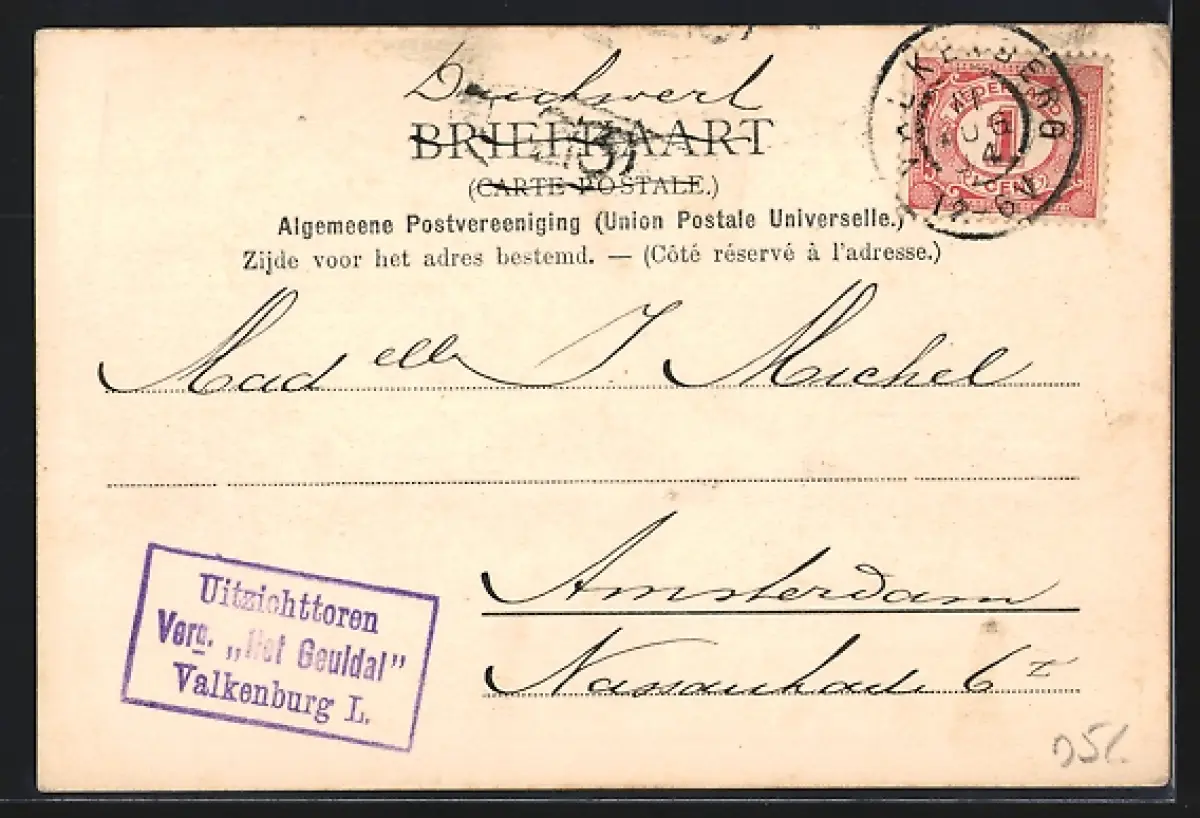 Drukwerk
BRIEFKAART
(CARTE POSTALE.)
Algemeene Postvereeniging (Union Postale Universelle.)
Zijde voor het adres bestemd. — (Côté réservé à l'adresse.)
Madelle J Michel
Amsterdam
Nassaukade 6 I
Uitzichttoren
Verg. „Het Geuldal”
Valkenburg L.
1